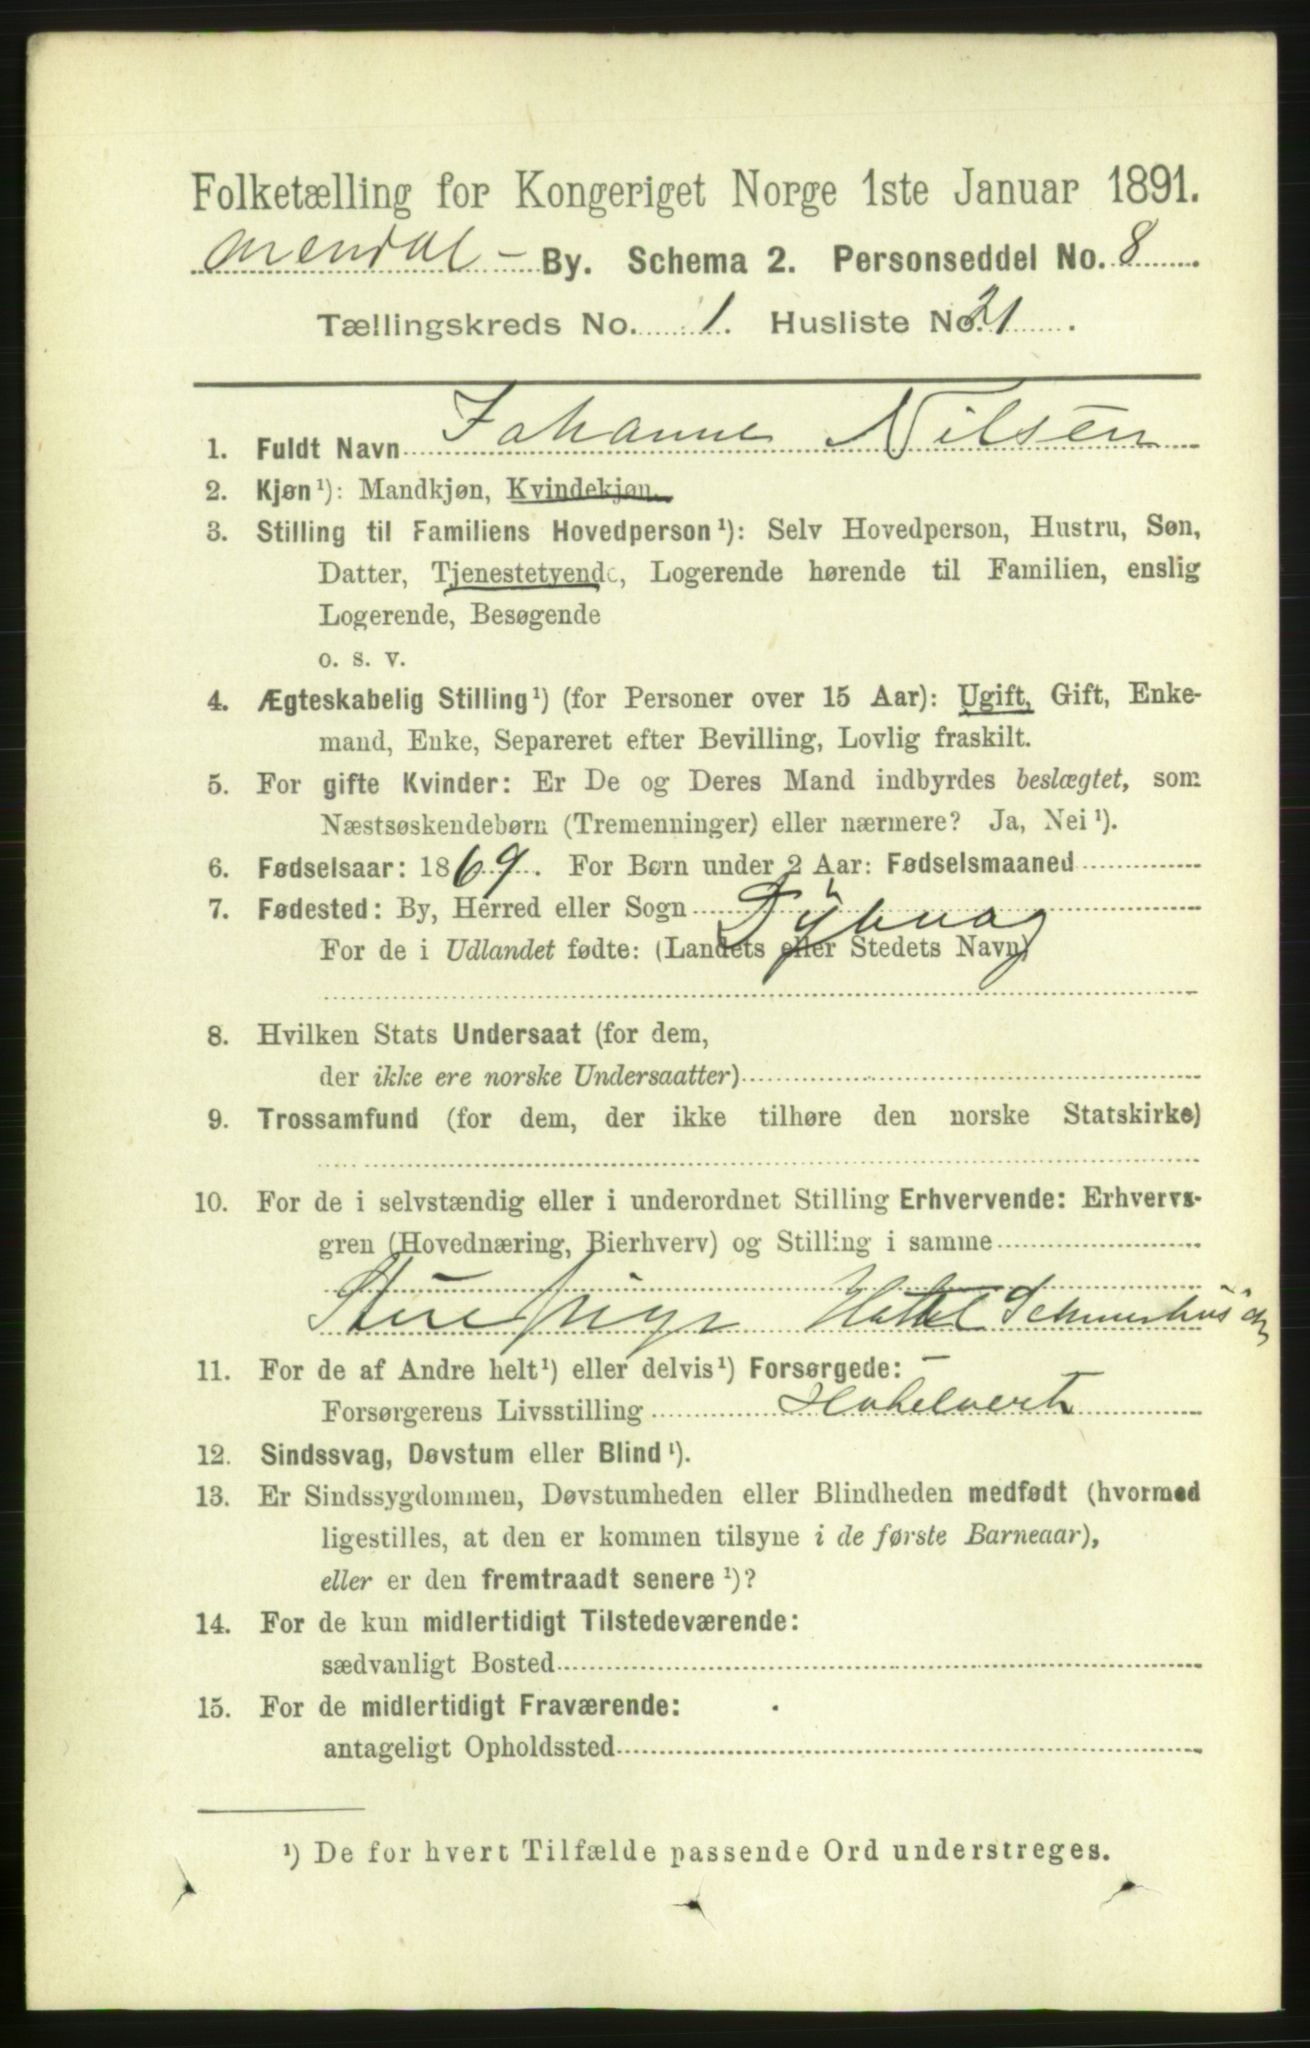 Folketælling for Kongeriget Norge 1ste Januar 1891.
Arendal – By. Schema 2. Personseddel No. 8
Tællingskreds No. 1. Husliste No. 21.
1. Fuldt Navn Johanne Nilsen
2. Kjøn¹): Mandkjøn, Kvindekjøn.
3. Stilling til Familiens Hovedperson¹): Selv Hovedperson, Hustru, Søn,
Datter, Tjenestetyende, Logerende hørende til Familien, enslig
Logerende, Besøgende
o. s. v.
4. Ægteskabelig Stilling¹) (for Personer over 15 Aar): Ugift, Gift, Enke-
mand, Enke, Separeret efter Bevilling, Lovlig fraskilt.
5. For gifte Kvinder: Er De og Deres Mand indbyrdes beslægtet, som
Næstsøskendebørn (Tremenninger) eller nærmere? Ja, Nei¹).
6. Fødselsaar: 1869. For Børn under 2 Aar: Fødselsmaaned
7. Fødested: By, Herred eller Sogn Dybvaag
For de i Udlandet fødte: (Landets eller Stedets Navn)
8. Hvilken Stats Undersaat (for dem,
der ikke ere norske Undersaatter)
9. Trossamfund (for dem, der ikke tilhøre den norske Statskirke)
10. For de i selvstændig eller i underordnet Stilling Erhvervende: Erhvervs-
gren (Hovednæring, Bierhverv) og Stilling i samme
Stuepige Hotel
11. For de af Andre helt¹) eller delvis¹) Forsørgede: –
Forsørgerens Livsstilling Hotelvert
12. Sindssvag, Døvstum eller Blind¹).
13. Er Sindssygdommen, Døvstumheden eller Blindheden medfødt (hvormed
ligestilles, at den er kommen tilsyne i de første Barneaar),
eller er den fremtraadt senere¹)?
14. For de kun midlertidigt Tilstedeværende:
sædvanligt Bosted
15. For de midlertidigt Fraværende:
antageligt Opholdssted
¹) De for hvert Tilfælde passende Ord understreges.